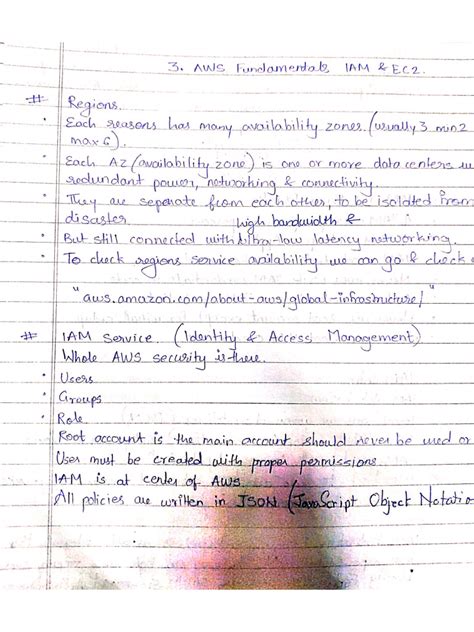 3. AWS Fundamentals IAM & EC2.
# Regions.
• Each reasons has many availability zones. (usually 3 min 2
max 6).
• Each AZ (availability zone) is one or more data centers
redundant power, networking & connectivity.
• They are seperate from each other, to be isolated from
disaster
high bandwidth &
• But still connected with ultra-low latency networking.
• To check regions service availability we can go & check
"aws.amazon.com/about-aws/global-infrastructure/"
# IAM Service. (Identity & Access Management)
Whole AWS security is there.
• Users
• Groups
• Role
Root account is the main account should never be used or
User must be created with proper permissions
IAM is at center of AWS
All policies are written in JSON (JavaScript Object Notatio